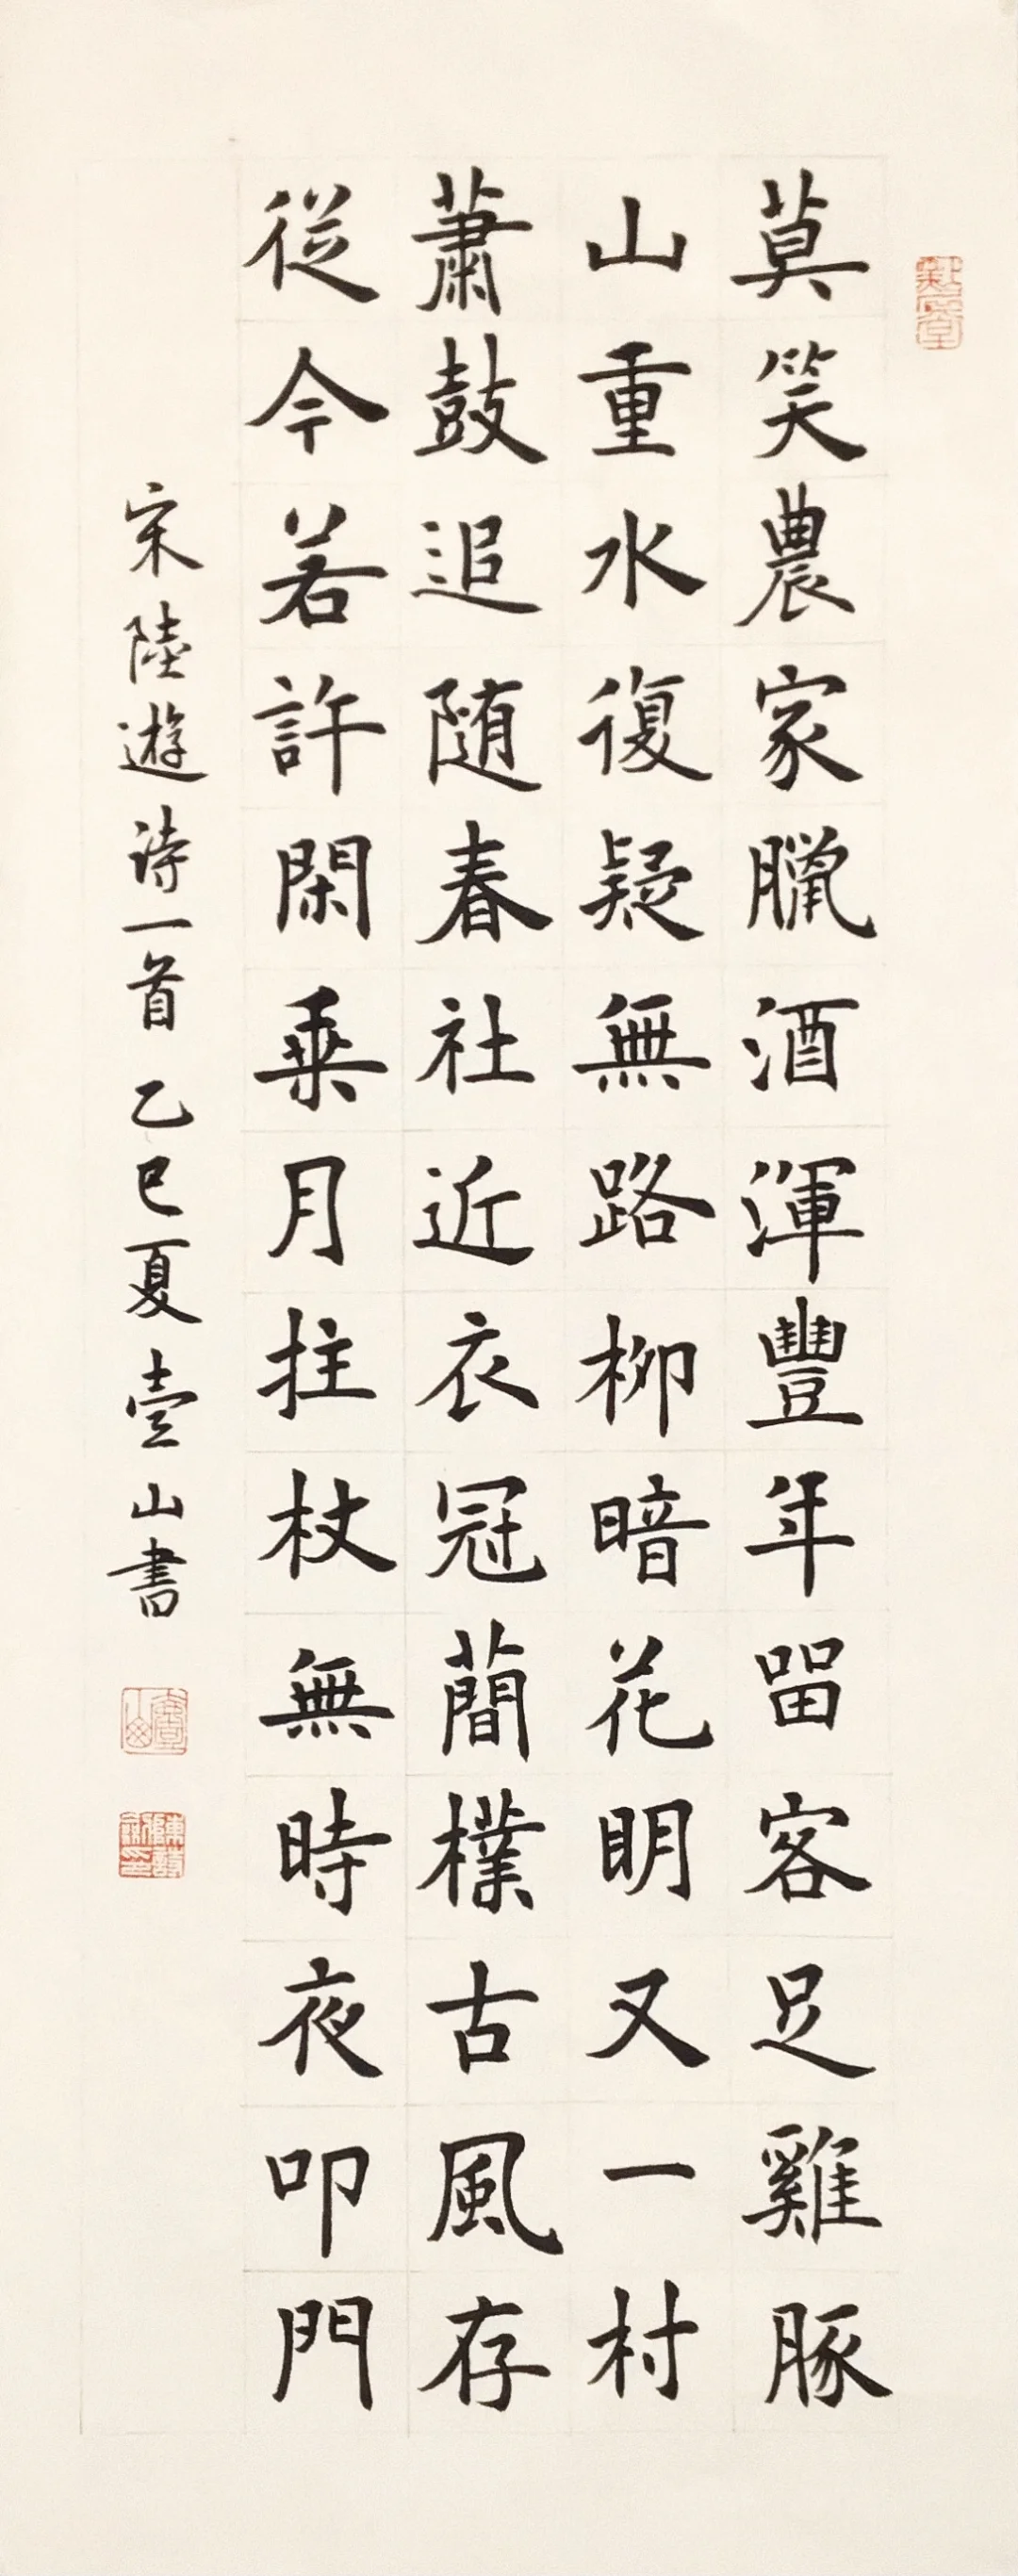 莫笑農家臘酒渾豐年留客足雞豚
山重水復疑無路柳暗花明又一村
蕭鼓追随春社近衣冠簡樸古風存
従今若許閑乗月拄杖無時夜叩門
宋陸遊诗一首 乙巳夏壹山書